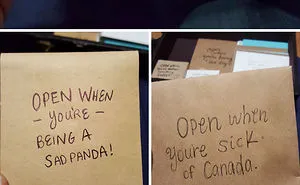 OPEN WHEN
- YOU'RE -
BEING A
SAD PANDA!
Open when
you're sick
of Canada.